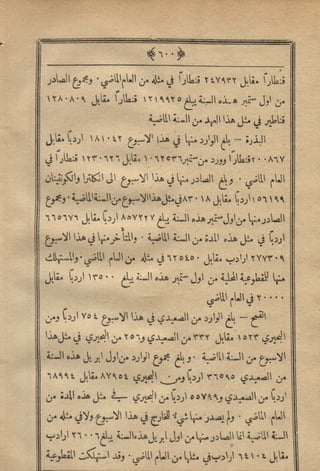 ﴿ ٦٠٠ ﴾
قنطارًا مقابل ٢٤٧٩٣٢ قنطارًا في مثله من العام الماضي . ومجموع الصادر
من اول ستمبر هذه السنة يبلغ ١٢١٩٩٣٥ قنطارًا مقابل ١٢٨٠٨٠٩
قناطير في مثل هذا العهد من السنة الماضية
البذرة — بلغ الوارد منها في هذا الاسبوع ١٨١٠٤٢ اردبًا مقابل
٢٠٠٨٦٧ قنطارًا وورد من ستمبر ١٠٦٢٥٣٦ مقابل ١٢٣٠٦٢٦ قنطارًا في
العام الماضي . وبلغ الصادر منها في هذا الاسبوع الى انكلترا والكونتيننان
١٥٦١٩٩ اردبًا مقابل ٨٣٠١٨ في مثل هذا الاسبوع من السنة الماضية . ومجموع
الصادر منها من اول ستمبر هذه السنة يبلغ ٨٥٧٢٢٧ اردبًا مقابل ٦٦٥٦٧٦
اردبًا في مثل هذه المدة من السنة الماضية . والمتأخر منها في هذا الاسبوع
٢٧٧٣٠٩ ارادب مقابل ٦٢٥٤٥٠ في مثله من العام الماضي . والمستهلك
منها للمقطوعية المحلية من اول ستمبر هذه السنة يبلغ ١٣٥٠٠ اردبًا مقابل
٢٠٠٠٠ في العام الماضي
القمح — بلغ الوارد من الصعيدي في هذا الاسبوع ٧٥٤ اردبًا ومن
البحيري ١٥٢٣ مقابل ٣٣٢ من الصعيدي و٢٥٦ من البحيري في مثل هذا
الاسبوع من السنة الماضية . وبلغ مجموع الوارد من اول ابريل هذه السنة
من الصعيدي ٣٦٥٩٥ اردبًا ومن البحيري ٨٧٩٥٤ مقابل ٦٨٩٩٤
من الصعيدي و٥٥٧٩٩ اردبًا من البحيري في مثل هذه المدة من
العام الماضي . ولم يصدر منها شيء للخارج في هذا الاسبوع ولا في مثله من
السنة الماضية انما الصادر منها من اول ابريل هذه السنة يبلغ ٢٦٠٠٦ ارادب
مقابل ٦٤١٠٤ ارادب في مثلها من العام الماضي . وقد استهلكت المقطوعية